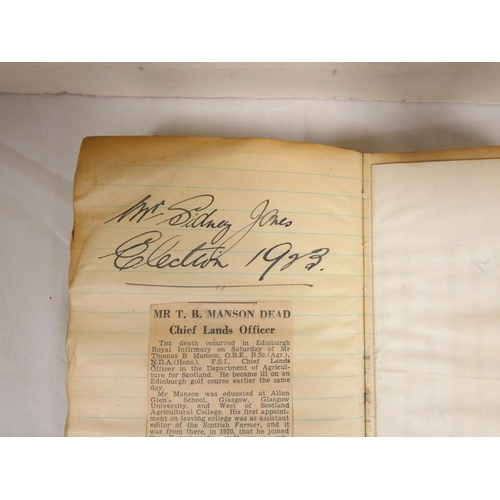 Mr Sidney Jones
Election 1923.
MR T. B. MANSON DEAD
Chief Lands Officer
THE death occurred in Edinburgh
Royal Infirmary on Saturday of Mr
Thomas B Manson, O.B.E., B.Sc.(Agr.),
N.D.A.(Hons.), F.S.I., Chief Lands
Officer in the Department of Agricul-
ture for Scotland. He became ill on an
Edinburgh golf course earlier the same
day.
Mr Manson was educated at Allan
Glen's School, Glasgow, Glasgow
University, and West of Scotland
Agricultural College. His first appoint-
ment on leaving college was as assistant
editor of the Scottish Farmer, and it
was from there, in 1920, that he joined